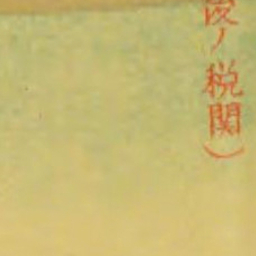 ノ税関）